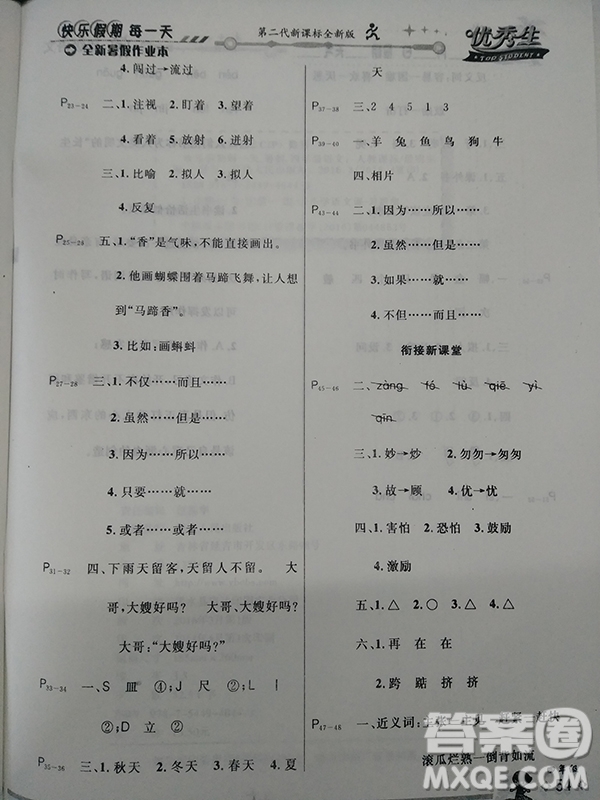 快乐假期 每一天
全新暑假作业本
第二代新课标全新版
优秀生
TOP STUDENT
4. 闯过→流过
P23-24 二、1. 注视 2. 盯着 3. 望着
4. 看着 5. 放射 6. 迸射
三、1. 比喻 2. 拟人 3. 拟人
4. 反复
P25-26 五、1. “香”是气味,不能直接画出。
2. 他画蝴蝶围着马蹄飞舞,让人想
到“马蹄香”。
3. 比如:画蝌蚪
P27-28 三、1. 不仅……而且……
2. 虽然……但是……
3. 因为……所以……
4. 只要……就……
5. 或者……或者……
P31-32 四、下雨天留客,天留人不留。 大
哥,大嫂好吗? 大哥大嫂好吗?
大哥:“大嫂好吗?”
P33-34 一、S 皿 ④;J 尺 ②;L 丨
②;D 立 ②
P35-36 三、1. 秋天 2. 冬天 3. 春天 4. 夏
天
P37-38 三、2 4 5 1 3
P39-40 一、羊 兔 鱼 鸟 狗 牛
四、相片
P43-44 二、1. 因为……所以……
2. 虽然……但是……
3. 如果……就……
4. 不但……而且……
衔接新课堂
P45-46 二、zàng fó lù qiē yì
qīn
三、1. 妙→炒 2. 勿勿→匆匆
3. 故→顾 4. 优→忧
四、1. 害怕 2. 恐怕 3. 鼓励
4. 激励
五、1. △ 2. ○ 3. △ 4. △
六、1. 再 在 在
2. 跨 踮 挤挤
P47-48 一、近义词:
滚瓜烂熟—倒背如流
答案圈
MXQE.COM
64